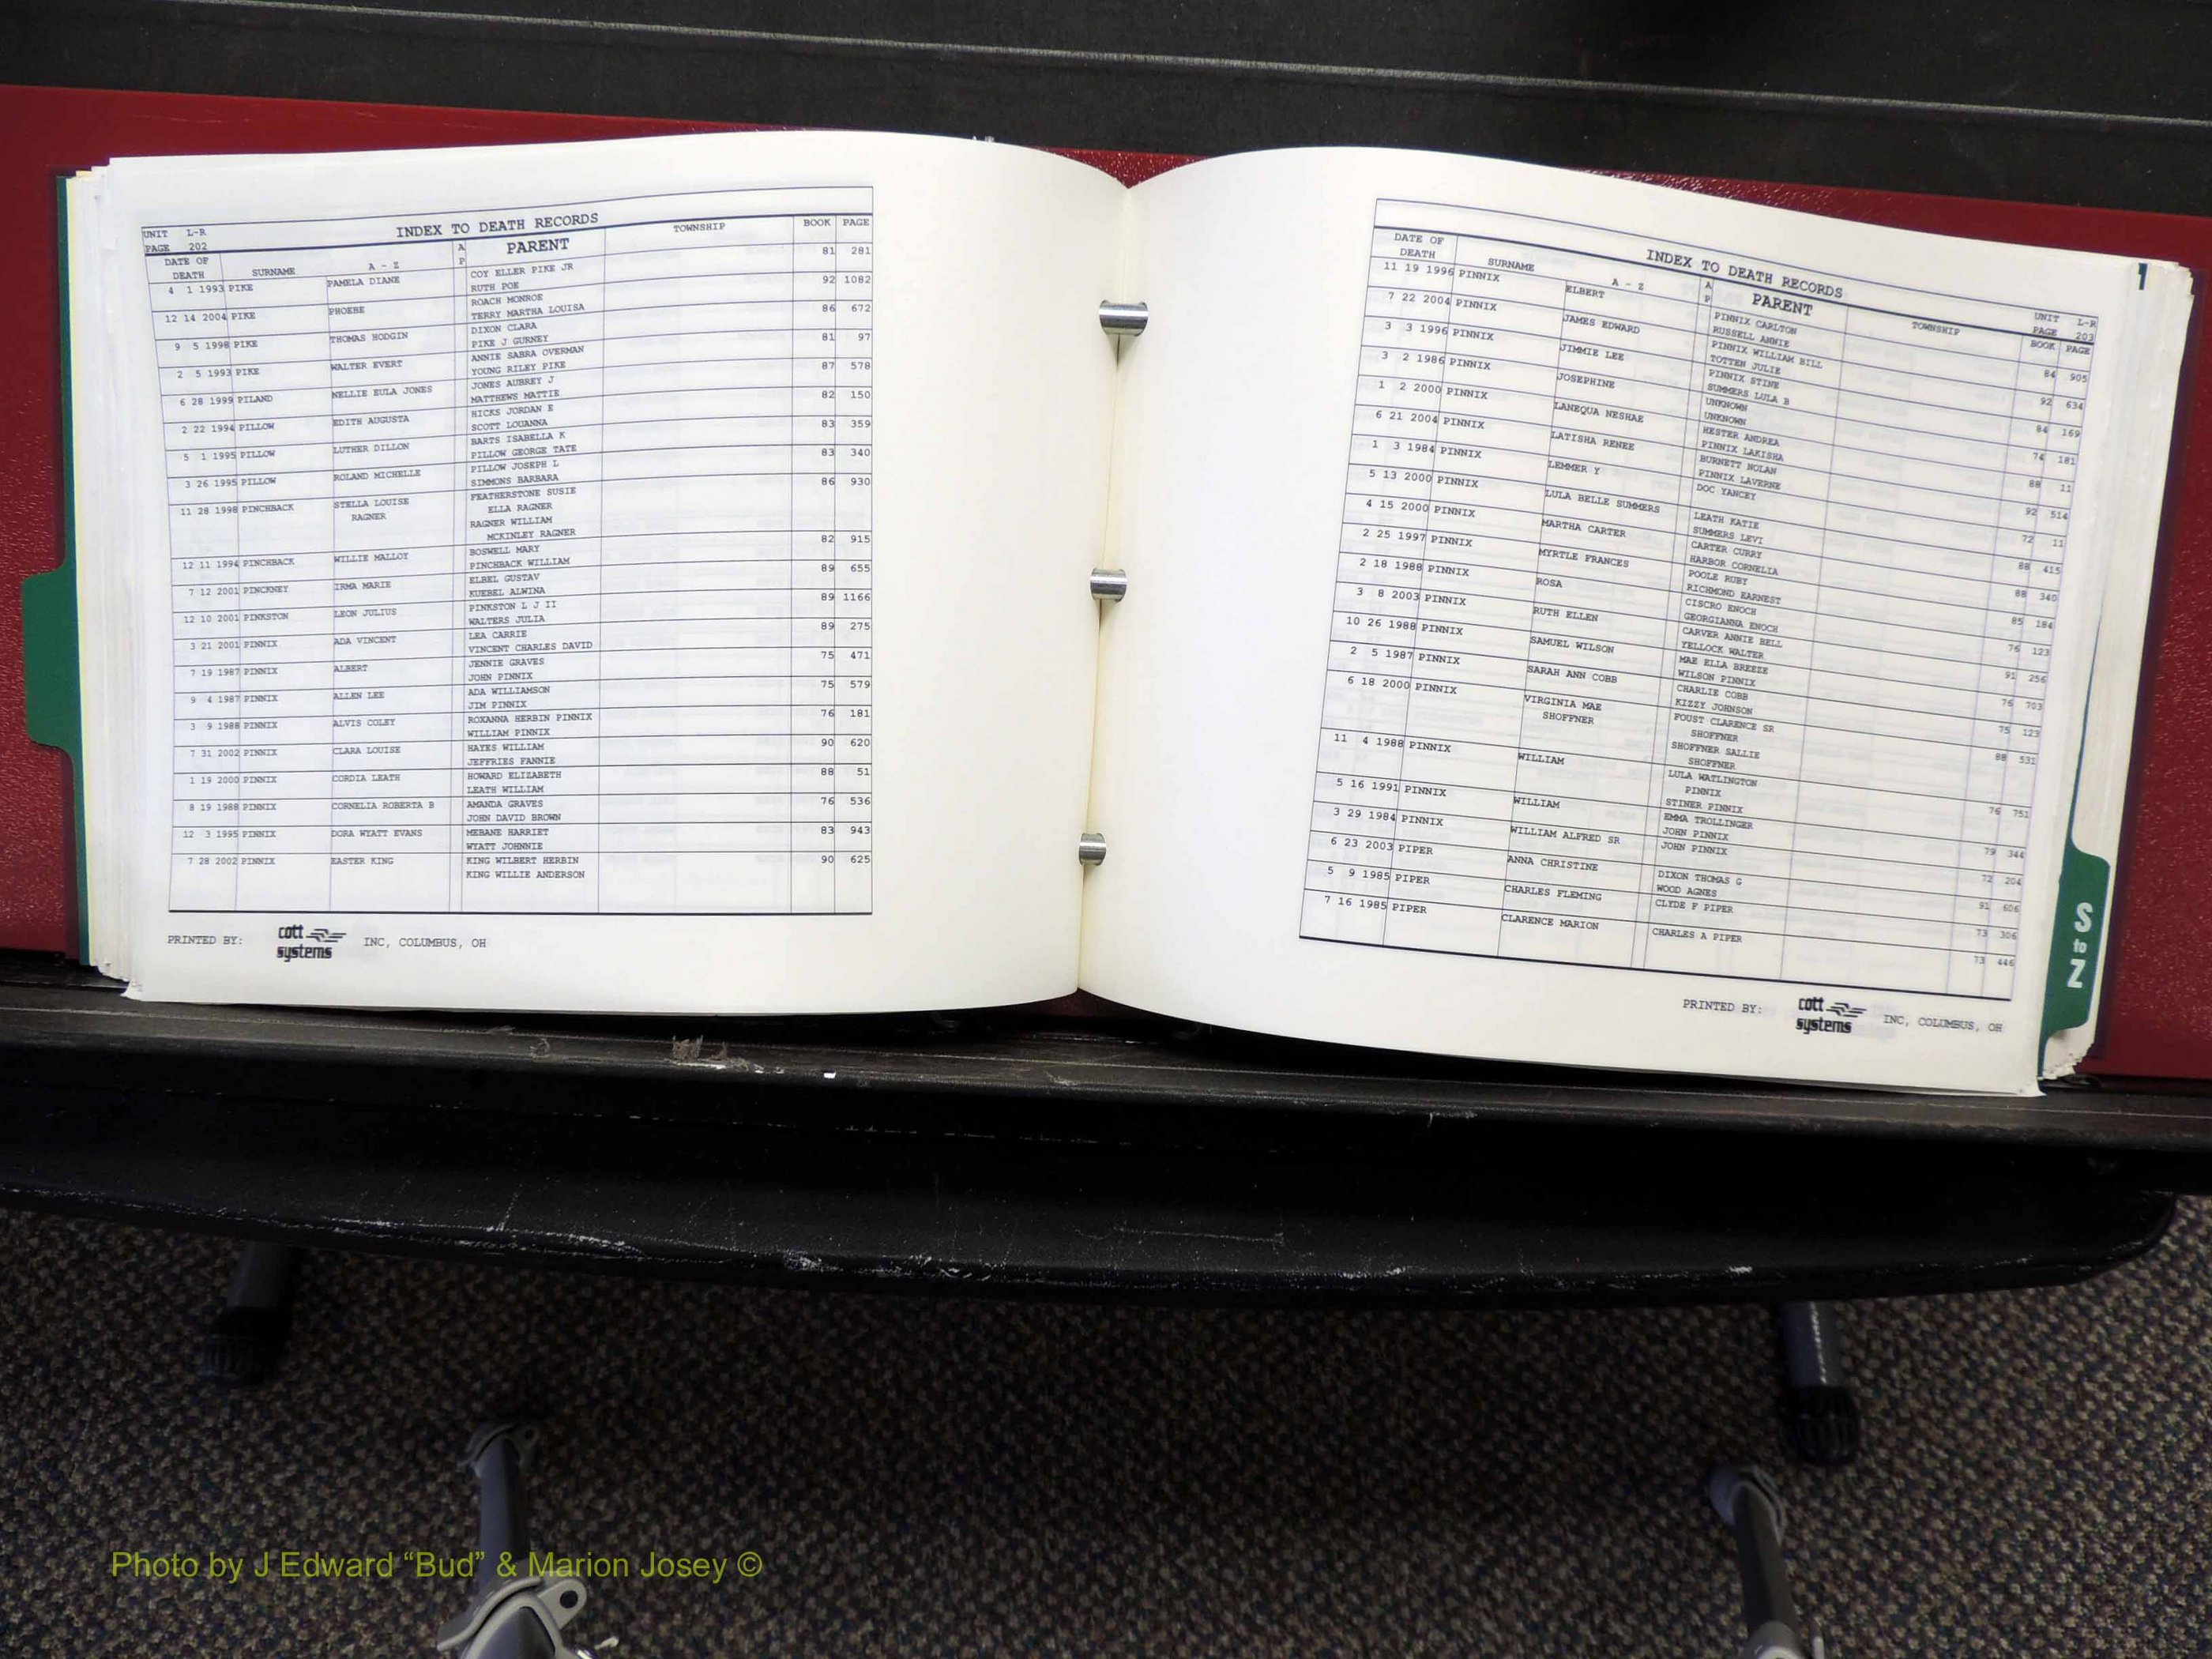 UNIT L-R
PAGE 202
INDEX TO DEATH RECORDS
DATE OF DEATH SURNAME A - Z A P PARENT TOWNSHIP BOOK PAGE
4 1 1993 PIKE PAMELA DIANE COY ELLER PIKE JR 81 281
RUTH POE
12 14 2004 PIKE PHOEBE ROACH MONROE 92 1082
TERRY MARTHA LOUISA
9 5 1998 PIKE THOMAS HODGIN DIXON CLARA 86 672
PIKE J GURNEY
2 5 1993 PIKE WALTER EVERT ANNIE SABRA OVERMAN 81 97
YOUNG RILEY PIKE
6 28 1999 PILAND NELLIE EULA JONES JONES AUBREY J 87 578
MATTHEWS MATTIE
2 22 1994 PILLOW EDITH AUGUSTA HICKS JORDAN E 82 150
SCOTT LOUANNA
5 1 1995 PILLOW LUTHER DILLON BARTS ISABELLA K 83 359
PILLOW GEORGE TATE
3 26 1995 PILLOW ROLAND MICHELLE PILLOW JOSEPH L 83 340
SIMMONS BARBARA
11 28 1998 PINCHBACK STELLA LOUISE FEATHERSTONE SUSIE 86 930
RAGNER ELLA RAGNER
RAGNER WILLIAM
MCKINLEY RAGNER
12 11 1994 PINCHBACK WILLIE MALLOY BOSWELL MARY 82 915
PINCHBACK WILLIAM
7 12 2001 PINCKNEY IRMA MARIE ELBEL GUSTAV 89 655
KUEBEL ALWINA
12 10 2001 PINKSTON LEON JULIUS PINKSTON L J II 89 1166
WALTERS JULIA
3 21 2001 PINNIX ADA VINCENT LEA CARRIE 89 275
VINCENT CHARLES DAVID
7 19 1987 PINNIX ALBERT JENNIE GRAVES 75 471
JOHN PINNIX
9 4 1987 PINNIX ALLEN LEE ADA WILLIAMSON 75 579
JIM PINNIX
3 9 1988 PINNIX ALVIS COLEY ROXANNA HERBIN PINNIX 76 181
WILLIAM PINNIX
7 31 2002 PINNIX CLARA LOUISE HAYES WILLIAM 90 620
JEFFRIES FANNIE
1 19 2000 PINNIX CORDIA LEATH HOWARD ELIZABETH 88 51
LEATH WILLIAM
8 19 1988 PINNIX CORNELIA ROBERTA B AMANDA GRAVES 76 536
JOHN DAVID BROWN
12 3 1995 PINNIX DORA WYATT EVANS MEBANE HARRIET 83 943
WYATT JOHNNIE
7 28 2002 PINNIX EASTER KING KING WILBERT HERBIN 90 625
KING WILLIE ANDERSON
PRINTED BY: cott systems INC, COLUMBUS, OH
1
INDEX TO DEATH RECORDS
UNIT L-R
PAGE 203
DATE OF DEATH SURNAME A - Z A P PARENT TOWNSHIP BOOK PAGE
11 19 1996 PINNIX ELBERT PINNIX CARLTON 84 905
RUSSELL ANNIE
7 22 2004 PINNIX JAMES EDWARD PINNIX WILLIAM BILL 92 634
TOTTEN JULIE
3 3 1996 PINNIX JIMMIE LEE PINNIX STINE 84 169
SUMMERS LULA B
3 2 1986 PINNIX JOSEPHINE UNKNOWN 74 181
UNKNOWN
1 2 2000 PINNIX LANEQUA NESHAE HESTER ANDREA 88 11
PINNIX LAKISHA
6 21 2004 PINNIX LATISHA RENEE BURNETT NOLAN 92 514
PINNIX LAVERNE
1 3 1984 PINNIX LEMMER Y DOC YANCEY 72 11
5 13 2000 PINNIX LULA BELLE SUMMERS LEATH KATIE 88 415
SUMMERS LEVI
4 15 2000 PINNIX MARTHA CARTER CARTER CURRY 88 340
HARBOR CORNELIA
2 25 1997 PINNIX MYRTLE FRANCES POOLE RUBY 85 184
RICHMOND EARNEST
2 18 1988 PINNIX ROSA CISCRO ENOCH 76 123
GEORGIANNA ENOCH
3 8 2003 PINNIX RUTH ELLEN CARVER ANNIE BELL 91 256
YELLOCK WALTER
10 26 1988 PINNIX SAMUEL WILSON MAE ELLA BREEZE 76 703
WILSON PINNIX
2 5 1987 PINNIX SARAH ANN COBB CHARLIE COBB 75 123
KIZZY JOHNSON
6 18 2000 PINNIX VIRGINIA MAE FOUST CLARENCE SR 88 531
SHOFFNER SHOFFNER
SHOFFNER SALLIE
SHOFFNER
11 4 1988 PINNIX WILLIAM LULA WATLINGTON 76 751
PINNIX
STINER PINNIX
5 16 1991 PINNIX WILLIAM EMMA TROLLINGER 79 344
JOHN PINNIX
3 29 1984 PINNIX WILLIAM ALFRED SR JOHN PINNIX 72 204
6 23 2003 PIPER ANNA CHRISTINE DIXON THOMAS G 91 606
WOOD AGNES
5 9 1985 PIPER CHARLES FLEMING CLYDE F PIPER 73 306
7 16 1985 PIPER CLARENCE MARION CHARLES A PIPER 73 446
PRINTED BY: cott systems INC, COLUMBUS, OH
S to Z
Photo by J Edward “Bud” & Marion Josey ©